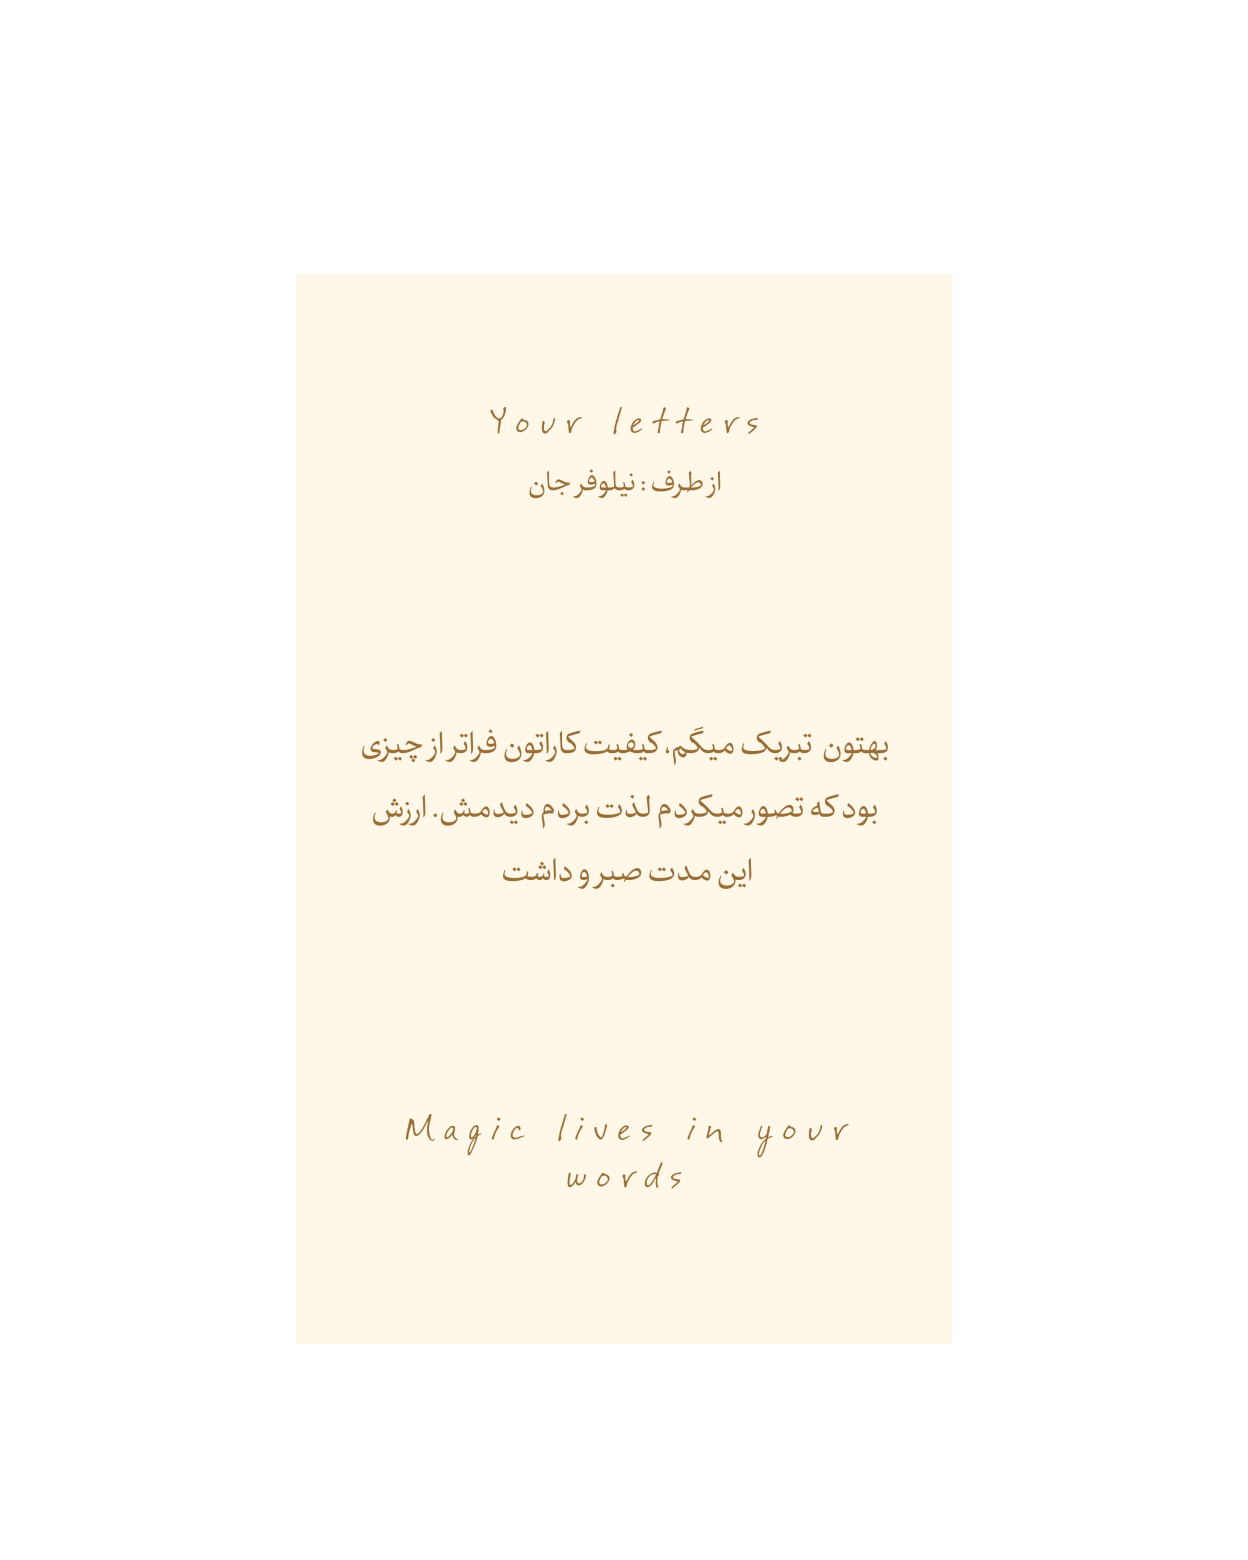 Your letters
از طرف : نیلوفر جان
بهتون تبریک میگم، کیفیت کاراتون فراتر از چیزی
بود که تصور میکردم لذت بردم دیدمش. ارزش
این مدت صبر و داشت
Magic lives in your
words